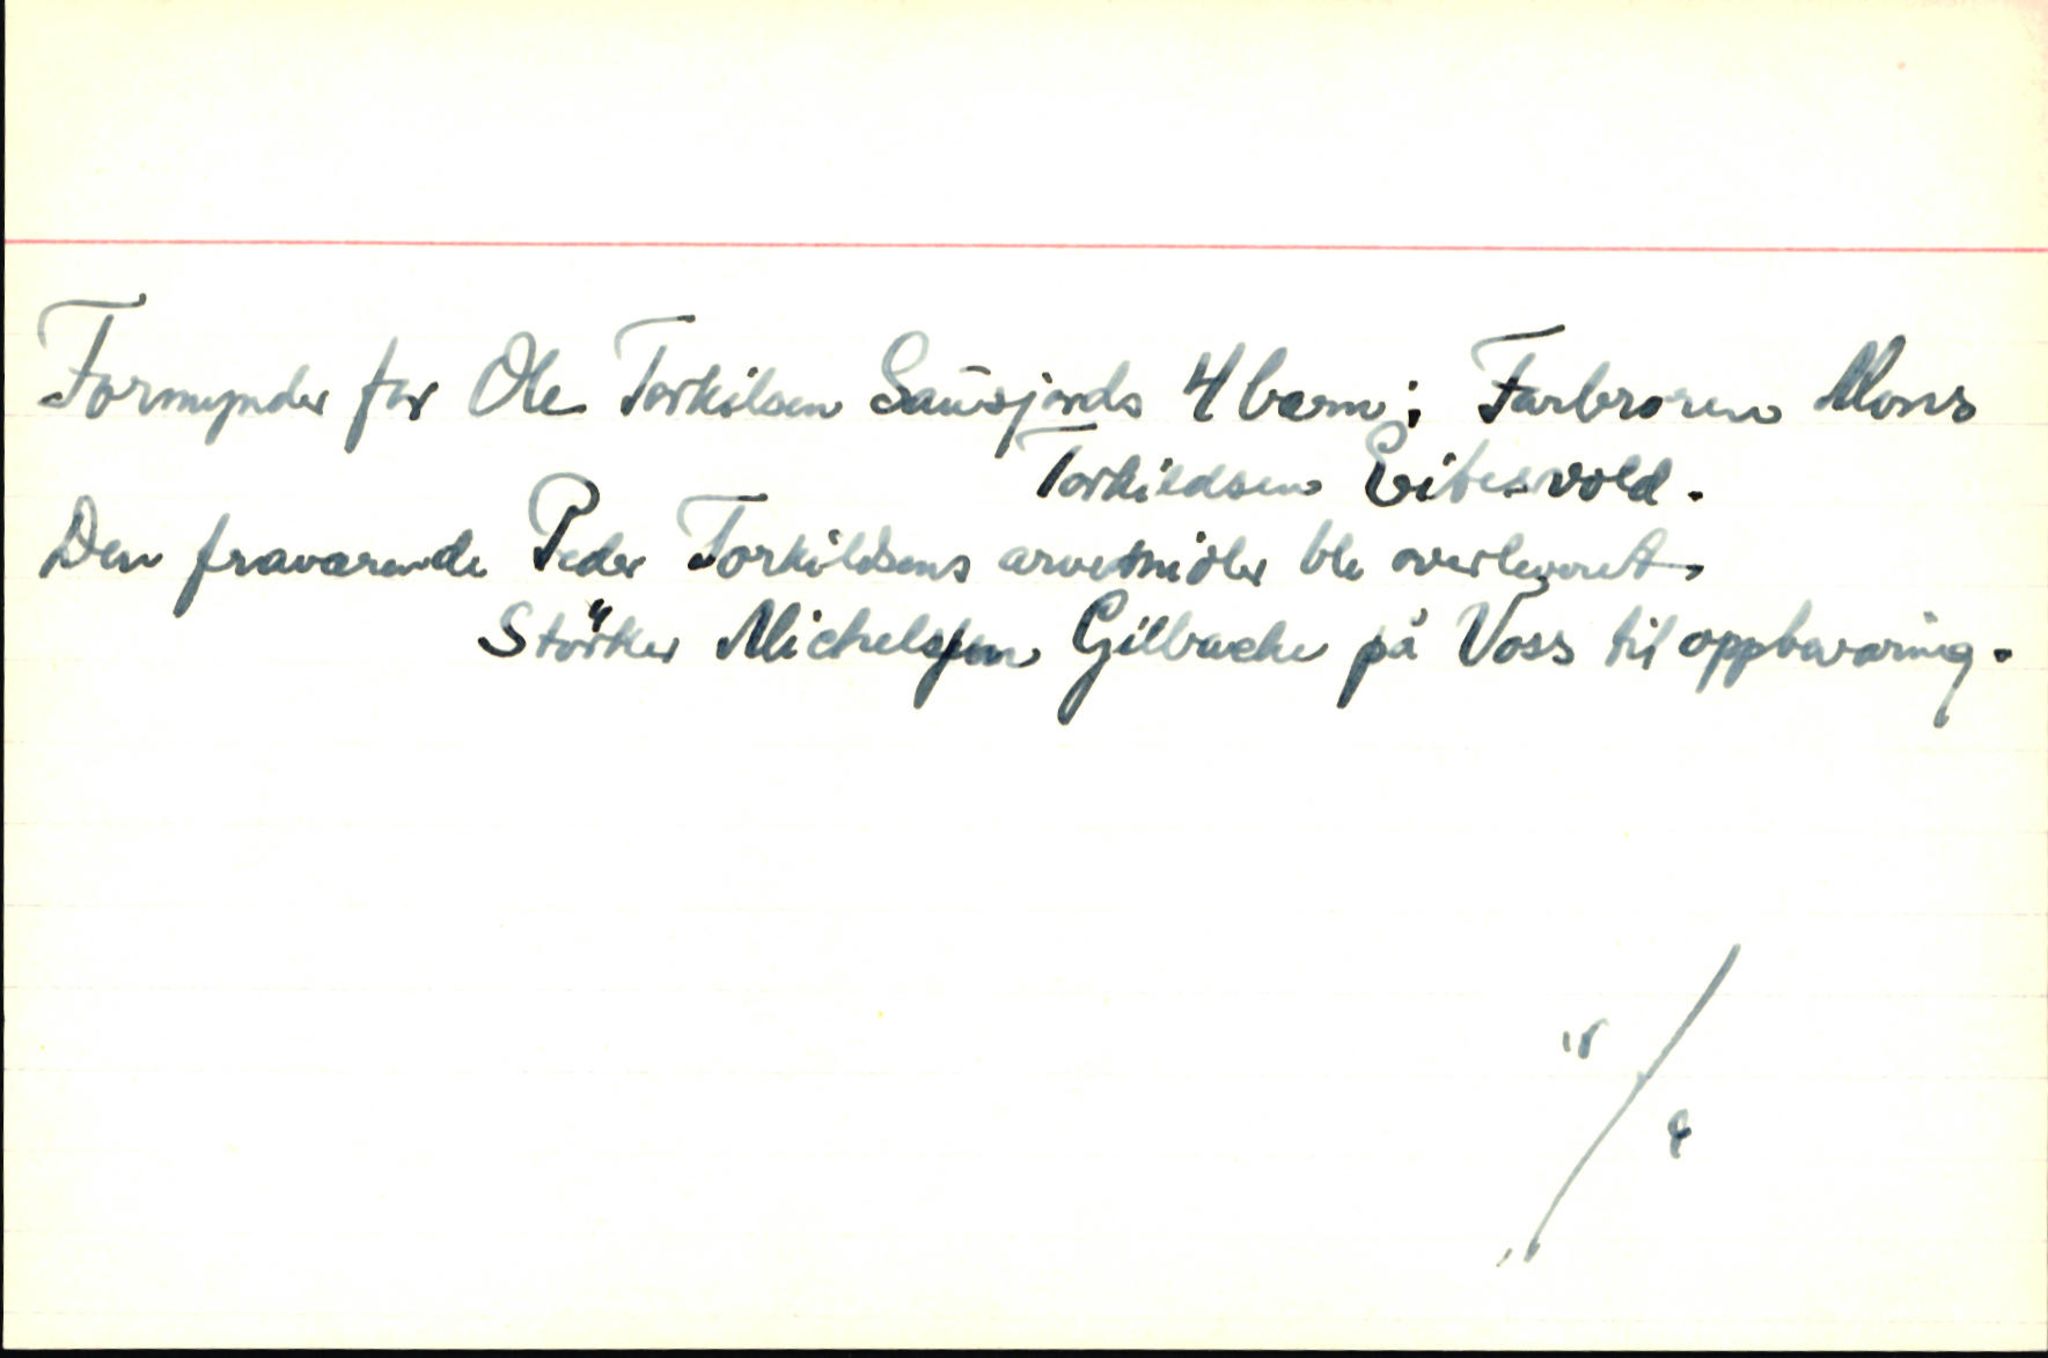 Formynder for Ole Torkilsen Sausjords 4 barn; Farbroren Mons
Torkildsen Eitesvold.
Den fraværende Peder Torkildsens arvemidler ble overleveret
Størker Michelssen Gilbacke på Voss til oppbevaring.